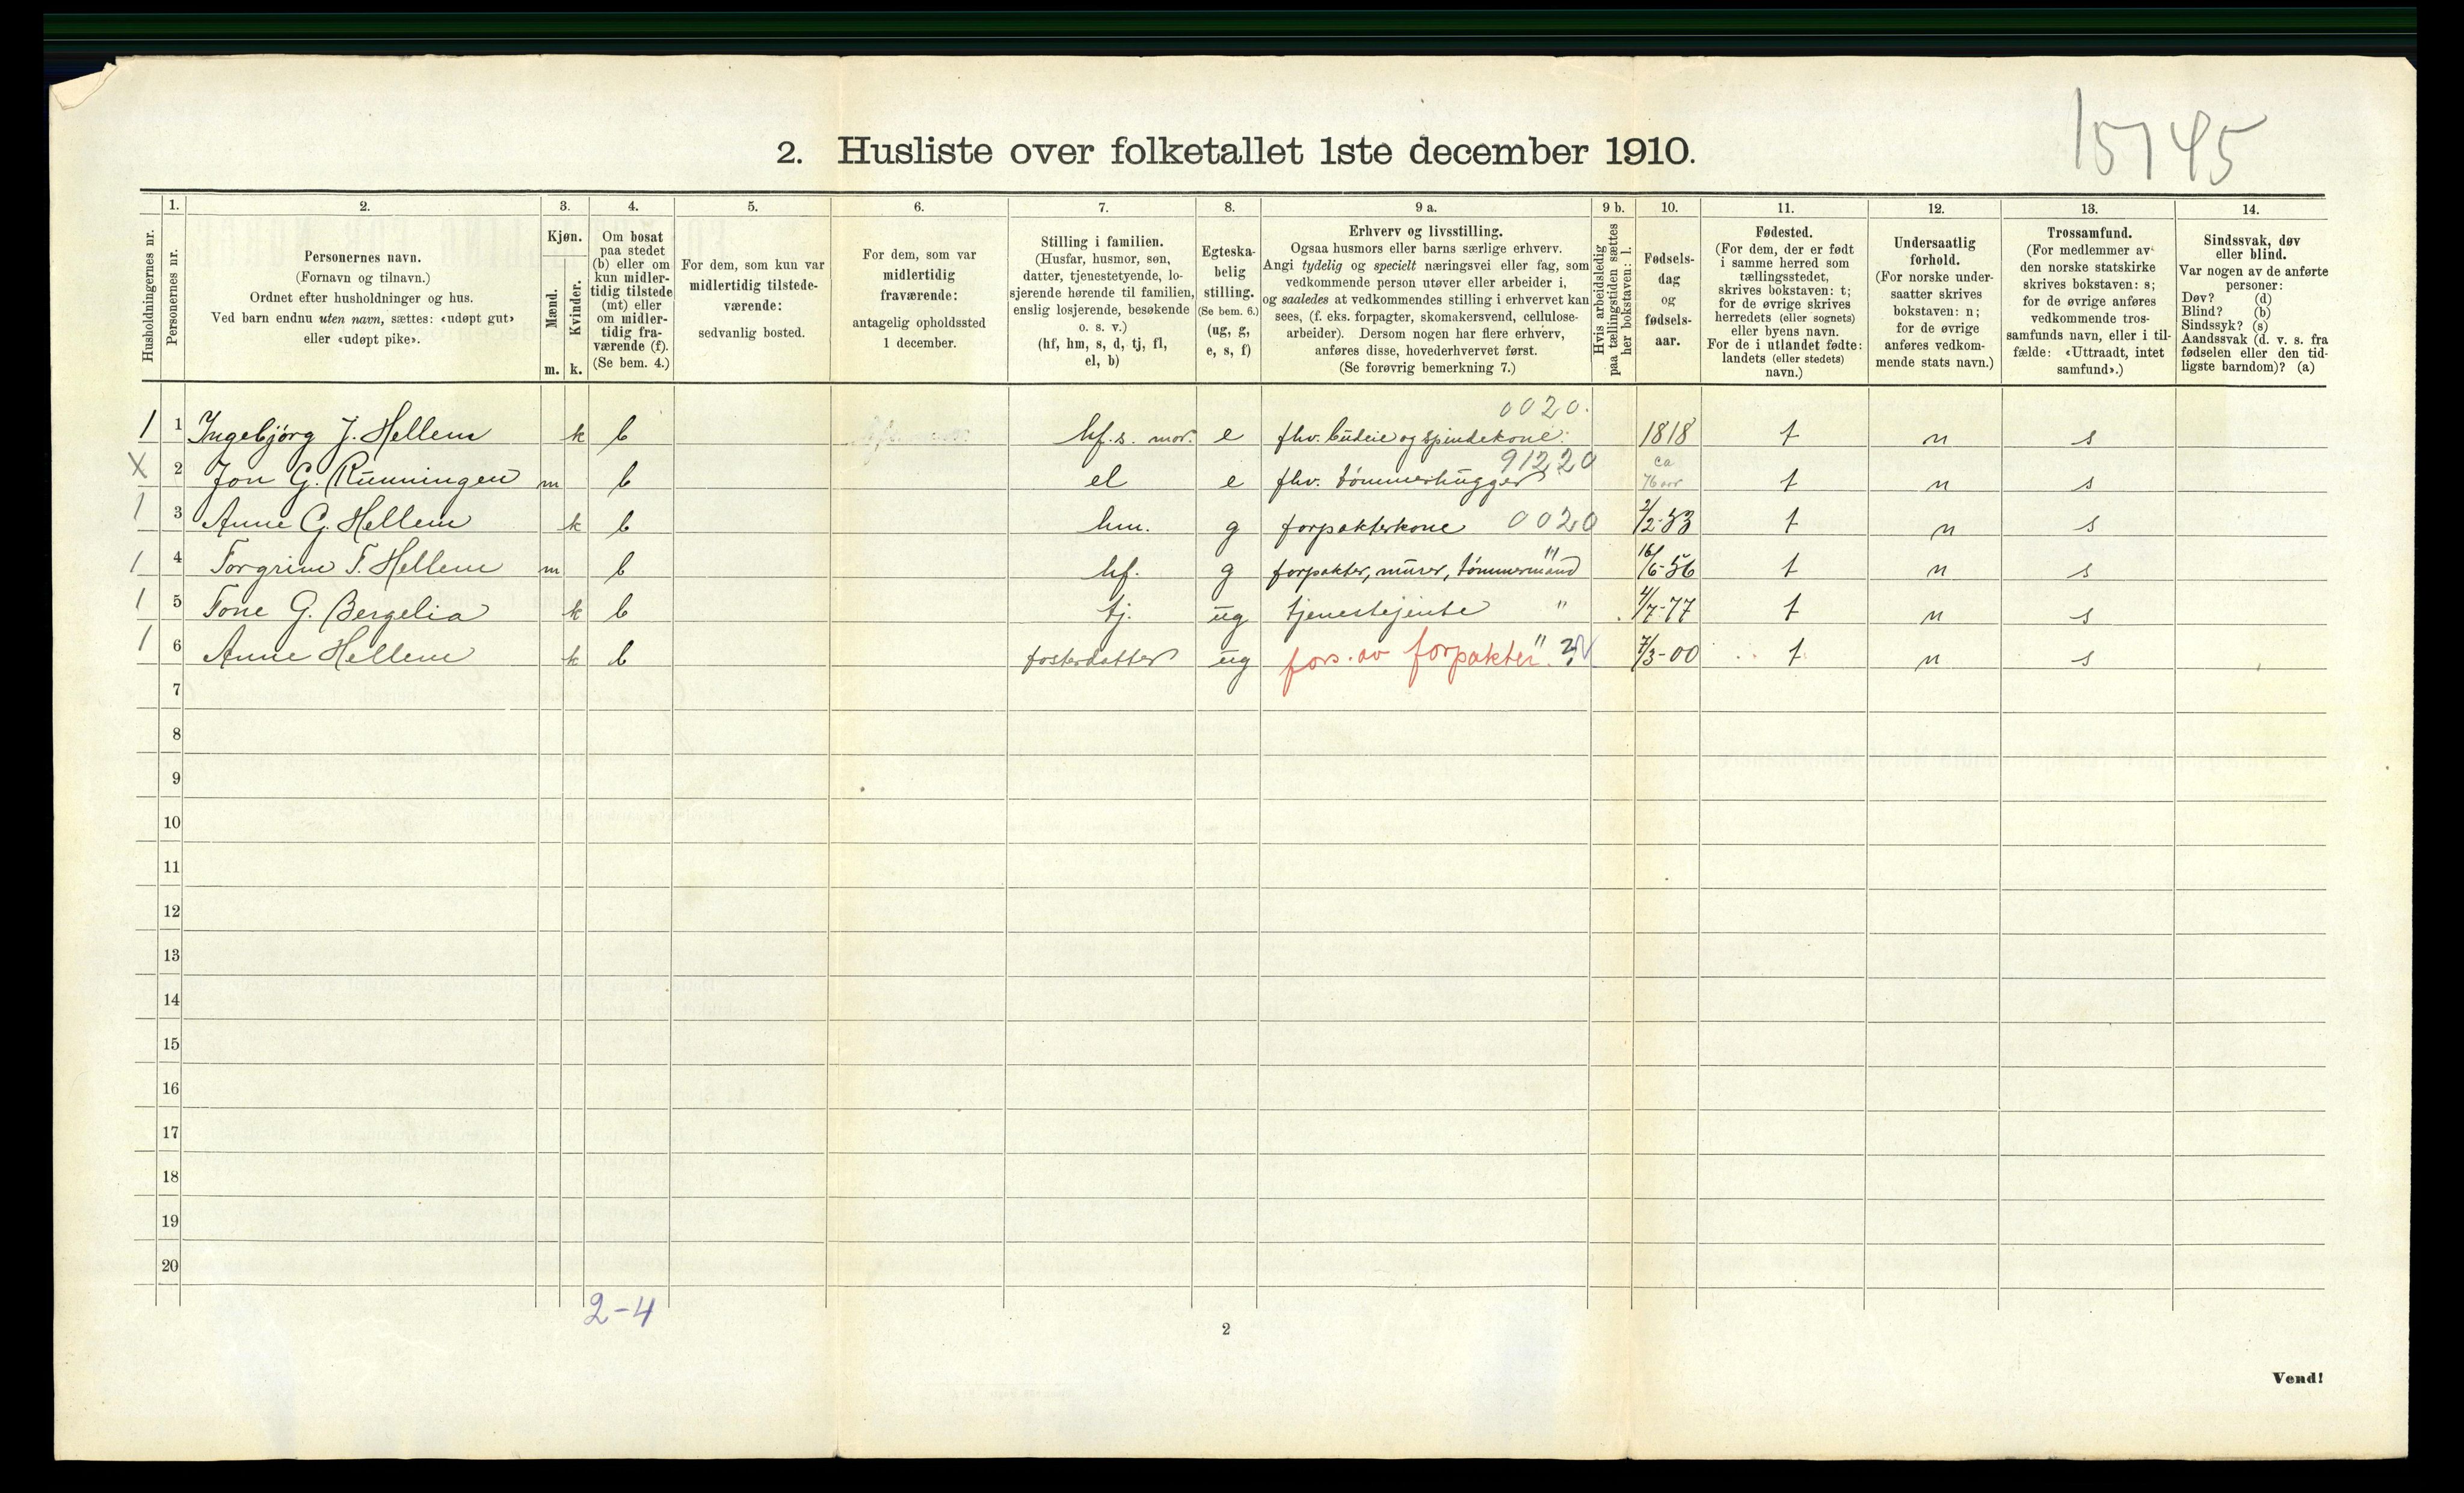 15145
2. Husliste over folketallet 1ste december 1910.
Husholdningernes nr.
1. Personernes nr.
2. Personernes navn.
(Fornavn og tilnavn.)
Ordnet efter husholdninger og hus.
Ved barn endnu uten navn, sættes: «udøpt gut»
eller «udøpt pike».
3. Kjøn.
Mænd. Kvinder.
m. k.
4. Om bosat
paa stedet
(b) eller om
kun midler-
tidig tilstede
(mt) eller
om midler-
tidig fra-
værende (f).
(Se bem. 4.)
5. For dem, som kun var
midlertidig tilstede-
værende:
sedvanlig bosted.
6. For dem, som var
midlertidig
fraværende:
antagelig opholdssted
1 december.
7. Stilling i familien.
(Husfar, husmor, søn,
datter, tjenestetyende, lo-
sjerende hørende til familien,
enslig losjerende, besøkende
o. s. v.)
(hf, hm, s, d, tj, fl,
el, b)
8. Egteska-
belig
stilling.
(Se bem. 6.)
(ug, g,
e, s, f)
9 a. Erhverv og livsstilling.
Ogsaa husmors eller barns særlige erhverv.
Angi tydelig og specielt næringsvei eller fag, som
vedkommende person utøver eller arbeider i,
og saaledes at vedkommendes stilling i erhvervet kan
sees, (f. eks. forpagter, skomakersvend, cellulose-
arbeider). Dersom nogen har flere erhverv,
anføres disse, hovederhvervet først.
(Se forøvrig bemerkning 7.)
9 b. Hvis arbeidsledig
paa tællingstiden sættes
her bokstaven: l.
10. Fødsels-
dag
og
fødsels-
aar.
11. Fødested.
(For dem, der er født
i samme herred som
tællingsstedet,
skrives bokstaven: t;
for de øvrige skrives
herredets (eller sognets)
eller byens navn.
For de i utlandet fødte:
landets (eller stedets)
navn.)
12. Undersaatlig
forhold.
(For norske under-
saatter skrives
bokstaven: n;
for de øvrige
anføres vedkom-
mende stats navn.)
13. Trossamfund.
(For medlemmer av
den norske statskirke
skrives bokstaven: s;
for de øvrige anføres
vedkommende tros-
samfunds navn, eller i til-
fælde: «Uttraadt, intet
samfund».)
14. Sindssvak, døv
eller blind.
Var nogen av de anførte
personer:
Døv? (d)
Blind? (b)
Sindssyk? (s)
Aandssvak (d. v. s. fra
fødselen eller den tid-
ligste barndom)? (a)
0020.
1 1 Ingebjørg J. Hellem k b hf.s. mor. e fhv. budeie og spindekone. 1818 t n s
91220
X 2 Jon G. Rünningen m b el e fhv. tømmerhugger ca 76 aar t n s
1 3 Anne G. Hellem k b hm. g forpakterkone 0020 2/2-53 t n s
1 4 Torgrim T. Hellem m b hf. g forpakter, murer, tømmermand " 16/6-56 t n s
1 5 Tone G. Bergelia k b tj. ug tjenestejente " 4/7-77 t n s
1 6 Anne Hellem k b fosterdatter ug fors. av forpakter " 7/3-00 t n s
7
8
9
10
11
12
13
14
15
16
17
18
19
20
2-4
2
Vend!